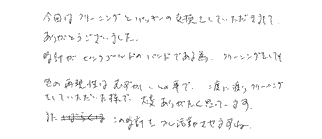 今回は クリーニングと パッキンの 交換をしていただきまして、
ありがとうございました。
時計が ピンクゴールドの バンドである為、クリーニングをしても
色の再現性は むずかしいの事で、二度に渡りクリーニング
をしていただいた様で、大変 ありがたく 思っています。
また この時計を フル活動させますね。